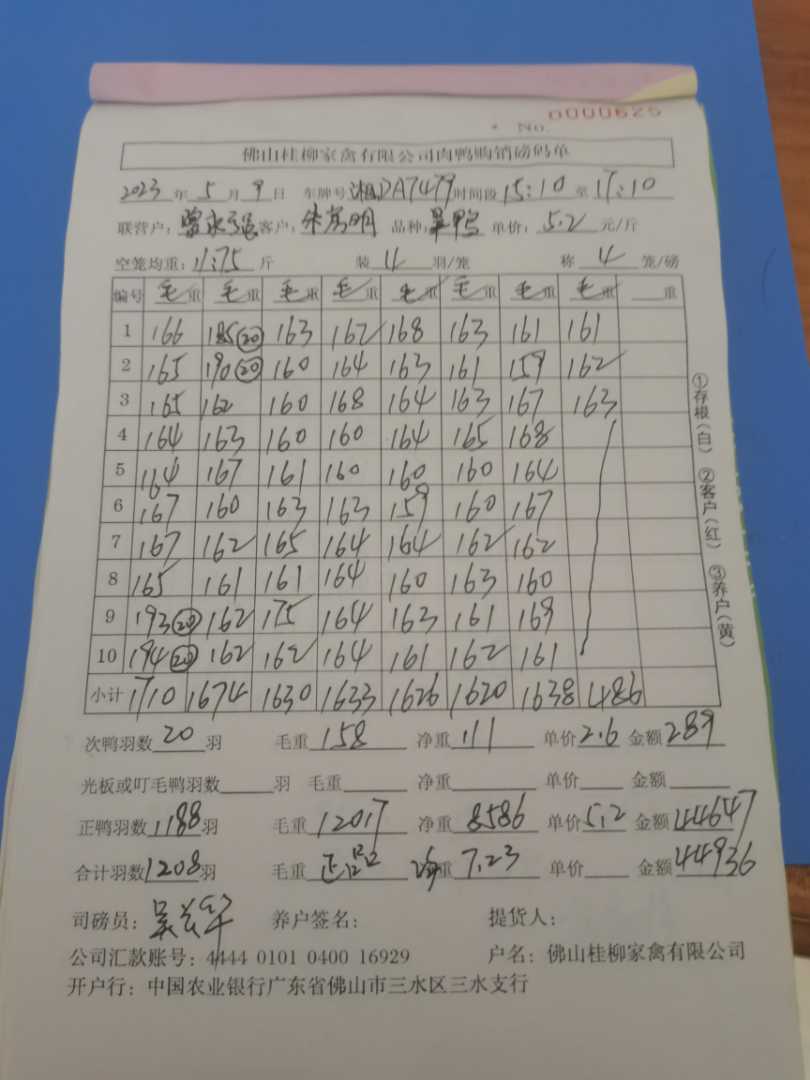 0000625
No.
佛山桂柳家禽有限公司肉鸭购销磅码单
2023 年 5 月 9 日 车牌号 湘DA7479 时间段 15:10 至 17:10
联营户: 曾永强 客户: 明 品种: 单价: 5.2 元/斤
空笼均重: 11.75 斤 装 4 羽/笼 称 4 笼/磅
编号 毛重 毛重 毛重 毛重 毛重 毛重 毛重 毛重 重
1 166 185(20) 163 162 168 163 161 161
2 165 190(20) 160 164 163 161 159 162
3 165 162 160 168 164 163 167 163
4 164 163 160 160 164 165 168
5 164 167 161 160 160 160 164
6 167 160 163 163 159 160 167
7 167 162 165 164 164 162 162
8 165 161 161 164 160 163 160
9 193(20) 162 175 164 163 161 169
10 194(20) 162 162 164 161 162 161
小计 1710 1674 1630 1633 1626 1620 1638 486
次鸭羽数 20 羽 毛重 158 净重 111 单价 2.6 金额 289
光板或叮毛鸭羽数 羽 毛重 净重 单价 金额
正鸭羽数 1188 羽 毛重 12017 净重 8586 单价 5.2 金额 44647
合计羽数 1208 羽 毛重 正品 净重 7.23 单价 金额 44936
司磅员: 吴兴华 养户签名: 提货人:
公司汇款账号: 4444 0101 0400 16929 户名: 佛山桂柳家禽有限公司
开户行: 中国农业银行广东省佛山市三水区三水支行
①存根(白) ②客户(红) ③养户(黄)